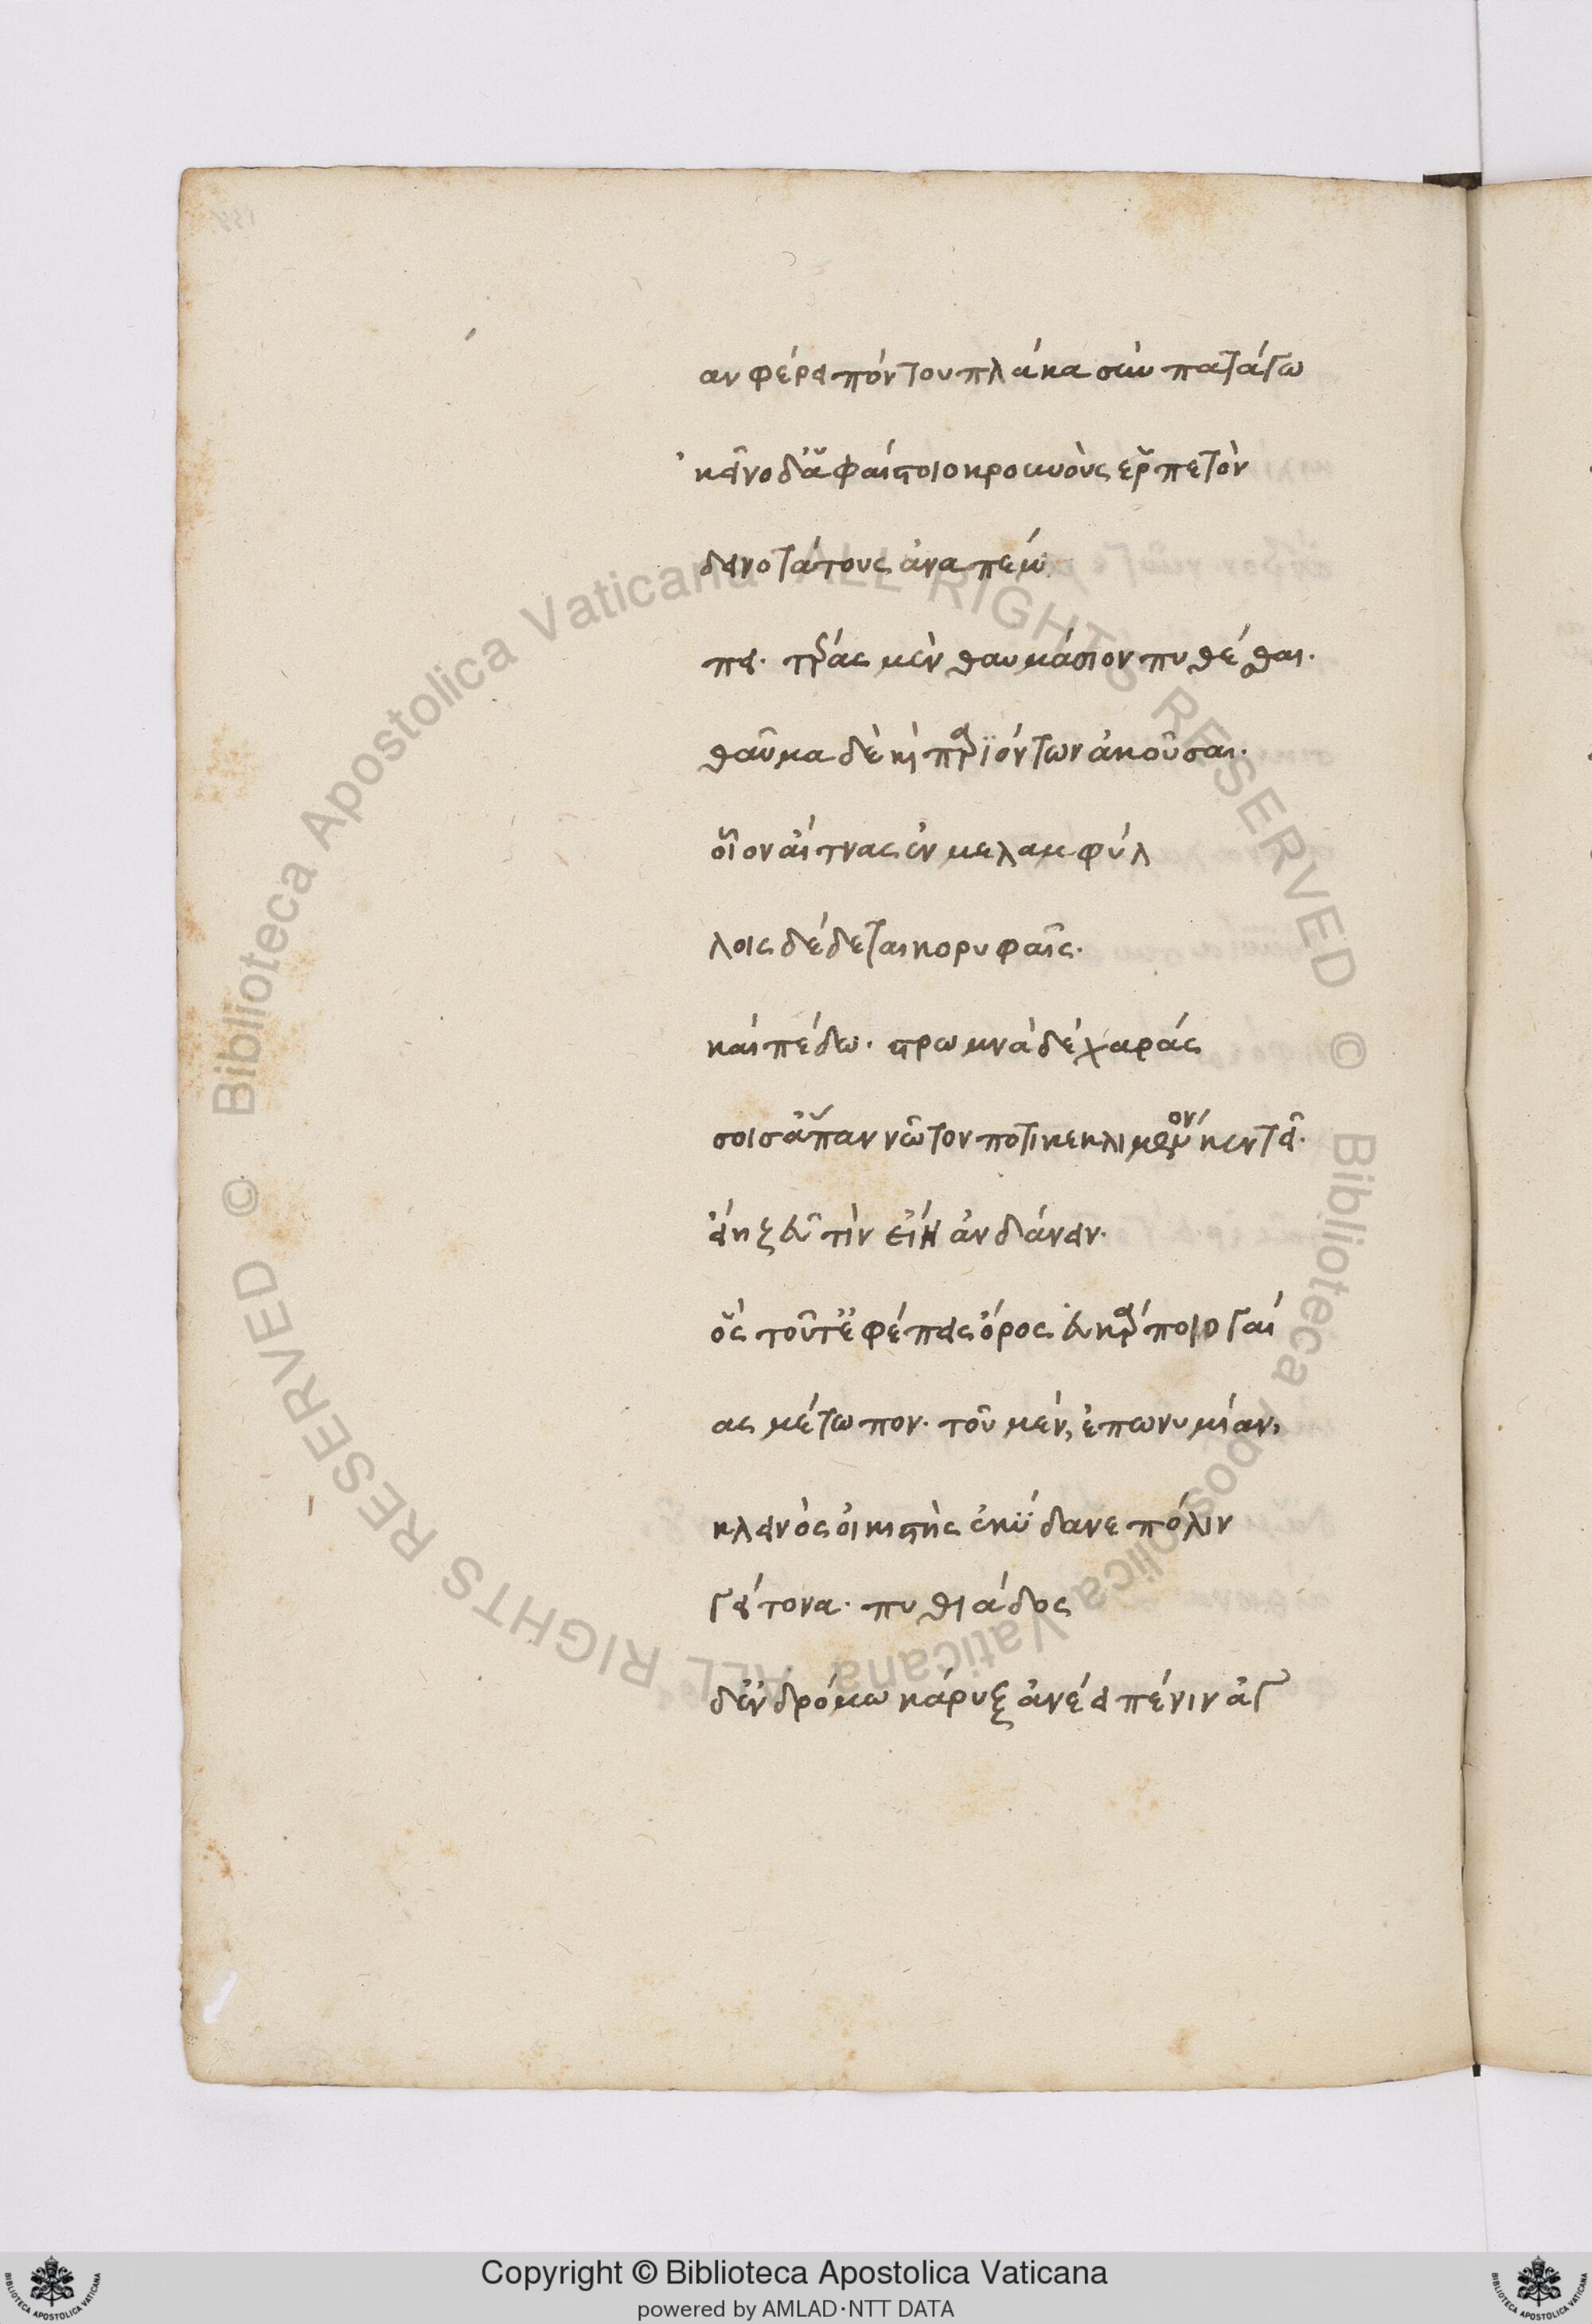 αν φέρει πόντου πλάκα σὺν πατάγω
κεῖνο δ' ἁφαίστοιο κρουνοὺς ἑρπετὸν
δεινοτάτους ἀναπέμ
πει. τέρας μὲν θαυμάσιον πυθέσθαι.
θαῦμα δὲ καὶ παριόντων ἀκοῦσαι.
οἷον αἴτνας ἐν μελαμφύλ
λοις δέδεται κορυφαῖς.
καὶ πέδω. στρωμνὰ δέ χαράσ
σοισ ἅπαν νῶτον ποτικεκλιμένον κεντεῖ.
εἴη ζεῦ τὶν εἴη ἁνδάνειν.
ὃς τοῦτ' ἐφέπεις ὄρος εὐκάρποιο γαί
ας μέτωπον. τοῦ μέν, ἐπωνυμίαν,
κλεινὸς οἰκιστὴς ἐκύδανε πόλιν
γείτονα. πυθιάδος
δ' ἐν δρόμω κάρυξ ἀνέειπέ νιν ἀγ
Copyright © Biblioteca Apostolica Vaticana
powered by AMLAD·NTT DATA
© Biblioteca Apostolica Vaticana ALL RIGHTS RESERVED
© Biblioteca Apostolica Vaticana ALL RIGHTS RESERVED